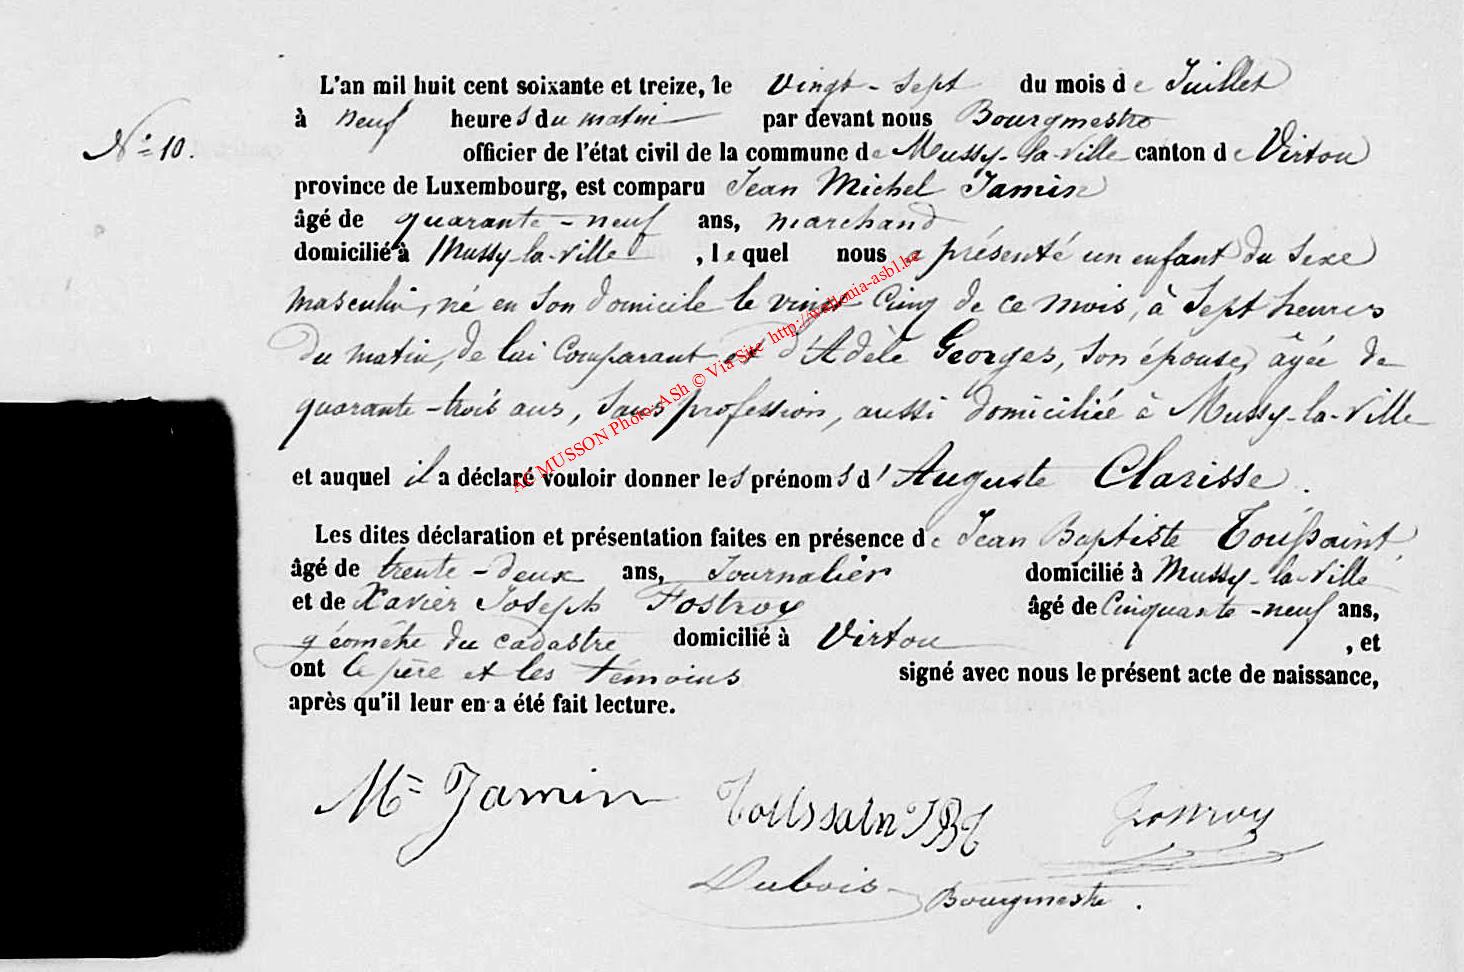 L'an mil huit cent soixante et treize, le vingt-sept du mois de Juillet
à neuf heures du matin par devant nous Bourgmestre
N° 10.
officier de l'état civil de la commune de Mussy-la-Ville canton de Virton
province de Luxembourg, est comparu Jean Michel Jamin
âgé de quarante-neuf ans, marchand
domicilié à Mussy-la-Ville, lequel nous a présenté un enfant du sexe
masculin, né en son domicile le vingt-cinq de ce mois, à sept heures
du matin, de lui comparant et d'Adèle Georges, son épouse, âgée de
quarante-trois ans, sans profession, aussi domiciliée à Mussy-la-Ville
et auquel il a déclaré vouloir donner les prénoms d'Auguste Clarisse.
Les dites déclaration et présentation faites en présence de Jean Baptiste Toussaint,
âgé de trente-deux ans, Journalier domicilié à Mussy-la-Ville
et de Xavier Joseph Fostroy âgé de Cinquante-neuf ans,
géomètre du cadastre domicilié à Virton, et
ont le père et les témoins signé avec nous le présent acte de naissance,
après qu'il leur en a été fait lecture.
M. Jamin Toussain JBt
Dubois Bourgmestre.
MUSSON Photo: ASh © Via Site http://wallonia-asbl.be